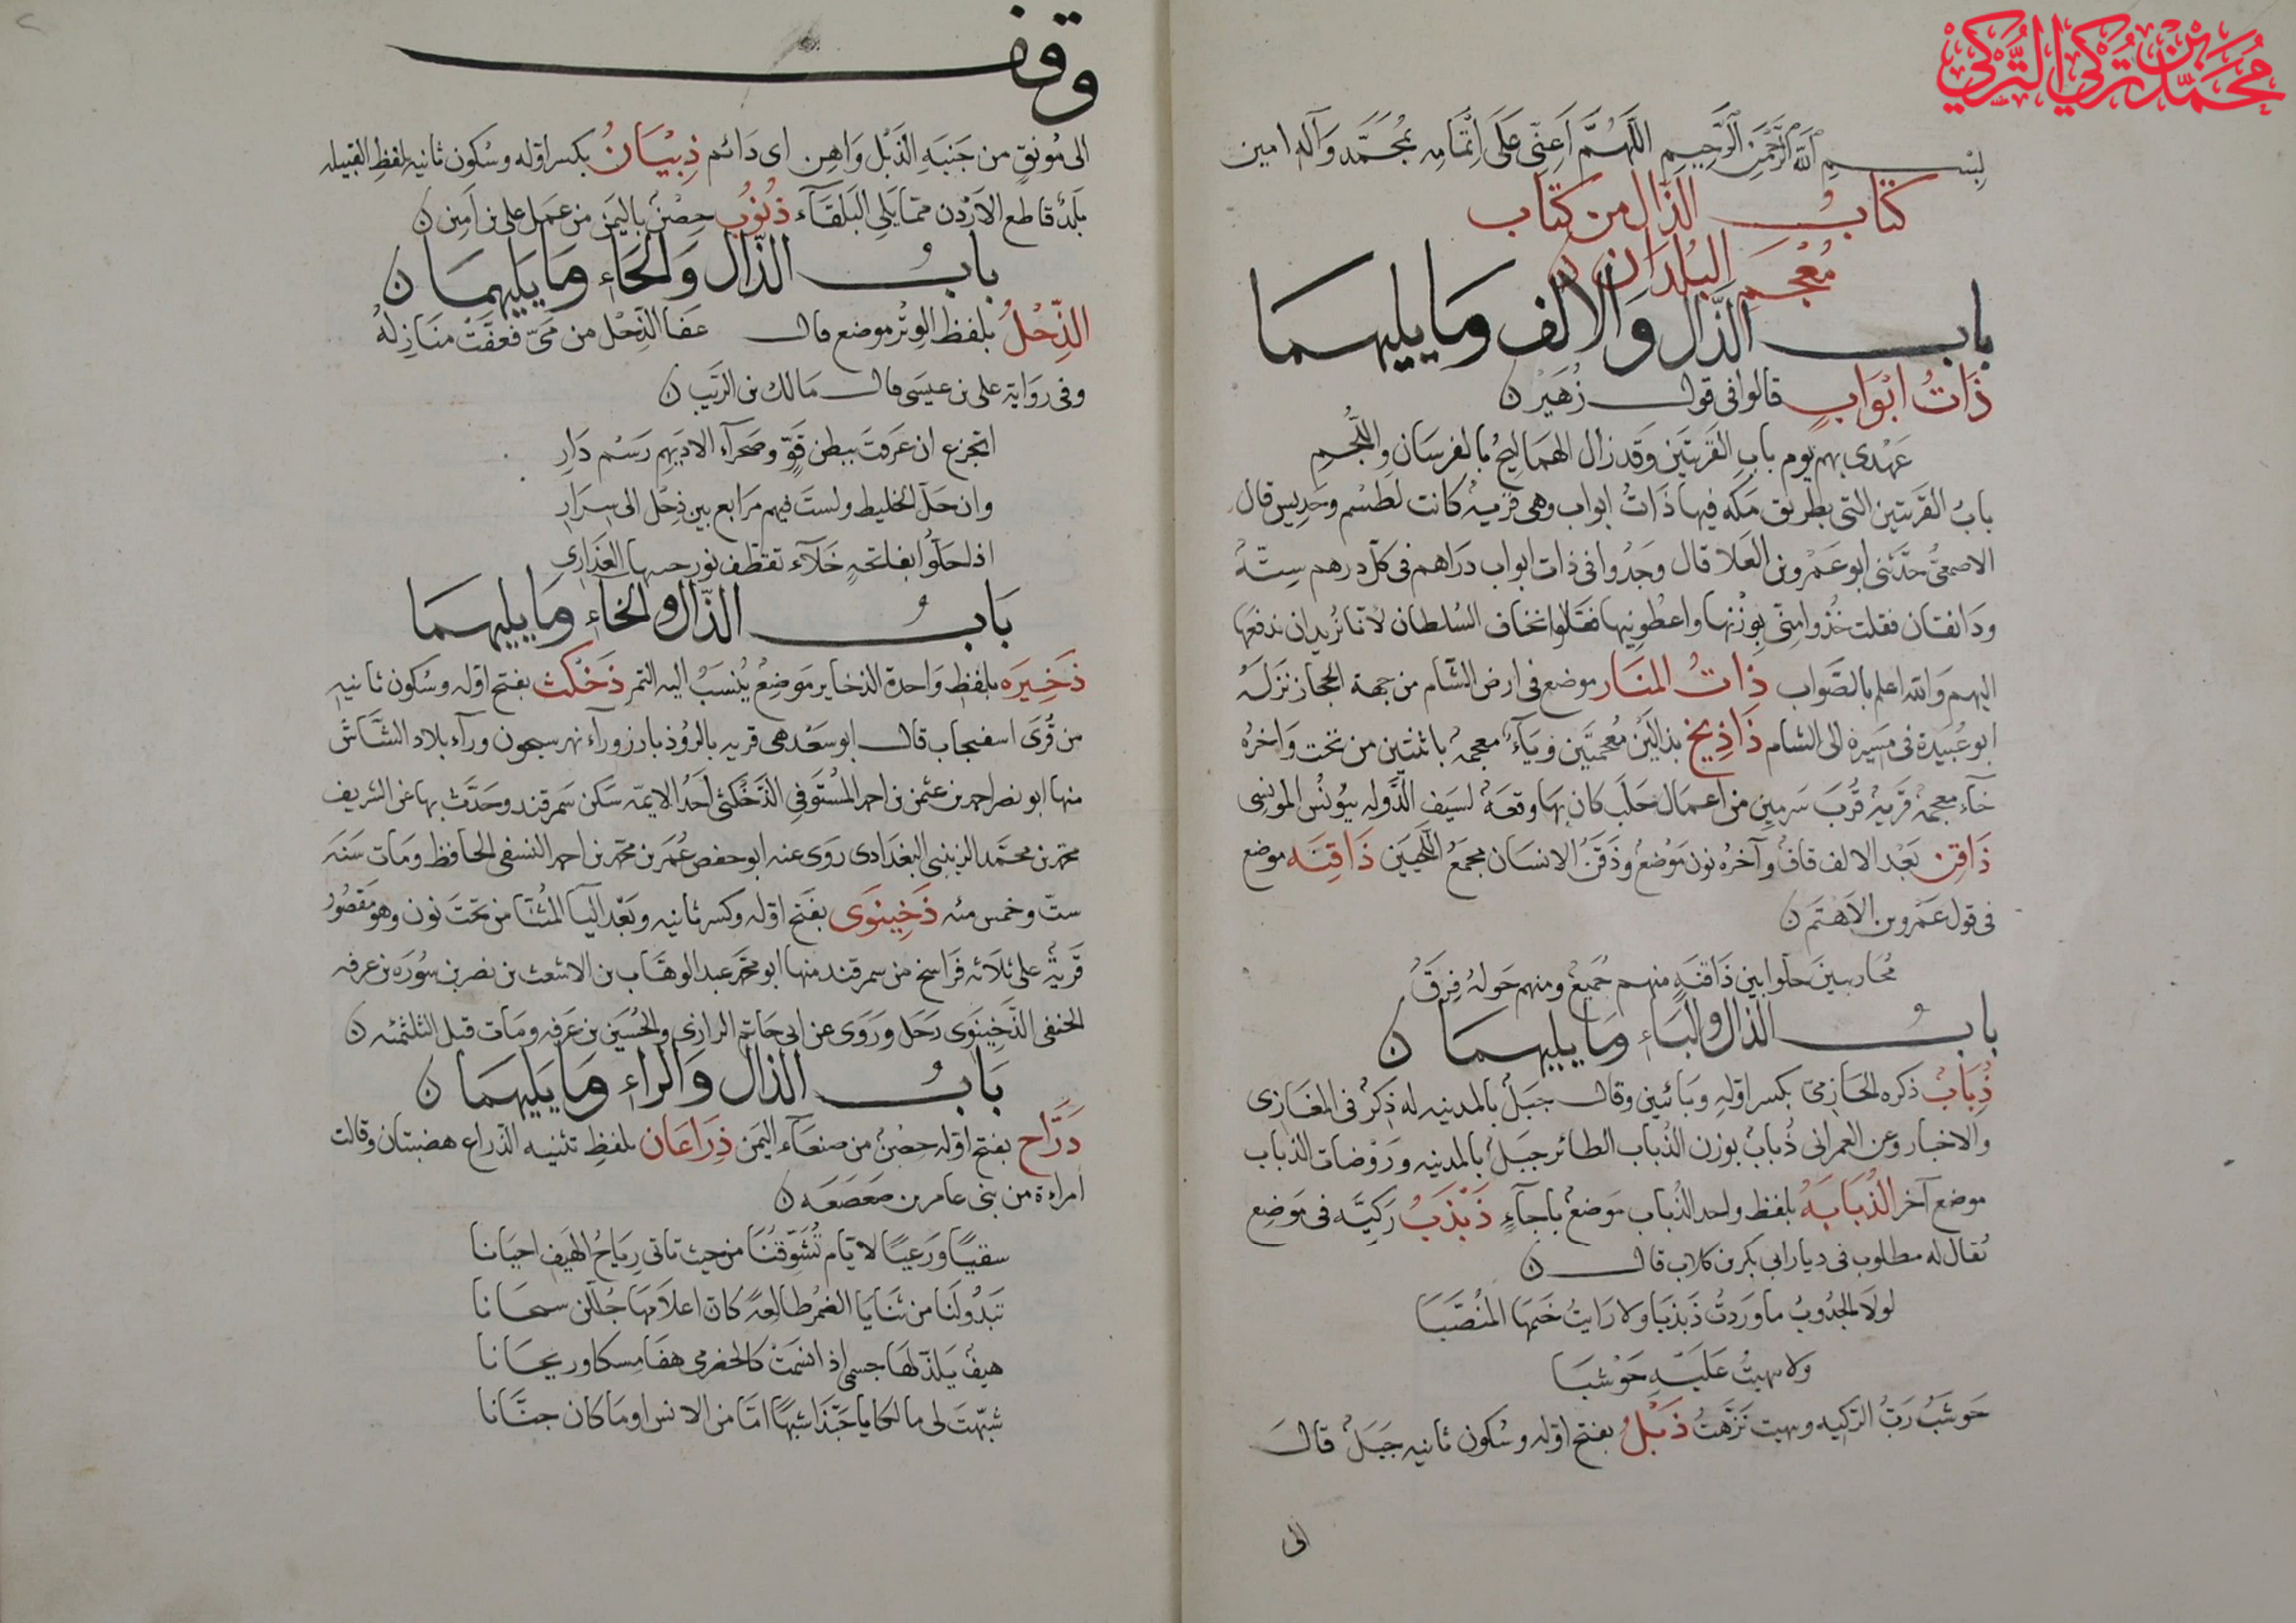 محمد بن تركي التركي
بِسْمِ اللَّهِ الرَّحْمَنِ الرَّحِيمِ اللَّهُمَّ اَعِنِّى عَلَى اِتْمَامِهِ بِمُحَمَّد وَآلِهِ امين
كتابُ الذال من كتاب
مُعْجَمِ البُلدَان ن
بابُ الذَّال وَالالف وَمَا يليهمَا
ذَاتُ ابْوَابٍ قالوا فى قول زُهَيْر ن
عَهْدى بهم يوم بابِ القَريَتَين وَقد زال الهمَاليجُ بالفرسَان واللُّجُمِ
بابُ القَريتين التى بطريق مَكه فيها ذَاتُ ابواب وهى قريه كانت لطسْم وجَديس قال
الاصمعىُّ حَدَّثنى ابو عَمْرو بن العَلا قال وجَدُوا فى ذات ابواب دَراهم فى كل درهم سِتّهُ
وَدَانقان فقلت خُذُوا مِنّى بِوَزْنها واعطُونيها فقالوا نخاف السُلطان لانا نُريد ان ندفعها
اليهم وَالله اعلم بالصَّوَاب ذاتُ المنَار موضع فى ارض الشام من جهة الحجاز نزلهُ
ابو عُبيدة فى مَسِيرهِ الى الشام ذَاذِيخ بذالَين مُعجمتَين وَيَآءٌ معجمه باثنتين من تحت وَاخرهُ
خَآء معجمهٌ قَريهٌ قُربَ سَرمِين من اعمَال حَلَب كان بهَا وقعَهٌ لسَيف الدَّولهِ بيُونُس المونسى
ذَاقِن بَعْد الالف قاف وآخرُه نون مَوْضعٌ وذَقَنُ الانسَان مجمَعُ اللَّحيَين ذَاقِنَه موضع
فى قول عَمْرو بن الاَهتَم ن
مُحَاربينَ حَلّوا بين ذَاقنَهٍ منهم جَميعٌ ومنهم حَولهُ فِرَقُ
بابُ الذال والبَاء ومَا يليهمَا ن
ذُِبَابُ ذكره الحَازِمىّ بكسر اوّلهِ وَبَائين وقال جبَلٌ بالمدينه له ذِكرٌ فى المغَازى
والاخبار وَعن العمرانى ذُبابٌ بوزن الذُباب الطائر جَبَلٌ بالمدينه وَرَوْضات الذباب
موضع آخر الذُبَابَهُ بلفظ واحد الذُباب مَوضعٌ باجَآءٍ ذَبْذَبُ رَكيَّه فى مَوضِع
يُقال له مطلوب فى ديار ابى بكر بن كلاب قال ن
لولا الجدُوبُ ما وَردتُ ذَبذَبا ولا رَايتُ خَيمَها المنُصَّبَا
ولا نهيتُ عَليَهِ حَوْشَبا
حَوشَبُ رَبُّ الرّكيه ونهيت نَزَّهتُ ذَبْلُ بفتح اوّله وسُكون ثانيه جَبَلٌ قال
الى
وقف
الى مُونقٍ من جَنبَهِ الذَّبْل وَاهِن اى دَائم ذِبْيَانُ بكسر اوّله وسُكون ثانيه بلفظِ القبيله
بَلَدٌ قاطع الاَرْدن ممّا يلى البَلقَآء ذَنُوبُ حِصْنٌ باليمَن من عمَل على بن اَمِين ن
بابُ الذّال وَالحَاء وَمَا يَليهمَا ن
الذَّحْلُ بلفظ الوِتْر موضع قال عَفا الذَّحْل من مَىّ فعَفَّتْ منَازِلُهُ
وفى رِوَاية على بن عيسَى قال مَالك بن الرَيَب ن
اتجزع ان عَرفتَ ببطن قَوٍّ وصَحرآء الادَيهِمِ رَسْم دَارِ
وان حَلّ الخليط ولستَ فيهم مَرَابع بين ذحْل الى سِرَارِ
اذا حَلُّوا بعَائجهٍ خَلآء تقطّف نور حنوتها العَذارى
بَابُ الذّال والخَاء وَمَا يليهمَا
ذَخِيرَه بلفظ وَاحدة الذخاير مَوضِعٌ يُنسَبُ اليه التمر ذَخْكَث بفتح اوّله وسُكون ثانيهِ
من قُرَى اسفيجاب قال ابو سَعْد هى قريه بالرُوذبار وَرآء نهر سيحون ورآء بلاد الشَّاش
منها ابو نصر احمد بن عثمن بن احمد المُسْتَوفى الذَّخْكَثى اَحَدُ الايمّه سَكَن سَمرقند وحَدَّث بها عَن الشريف
محمّد بن محمَّد الزينبى البغدَادى رَوَى عنه ابو حفص عُمَر بن محمّد بن احمد النسفى الحافظ ومَات سَنَه
ستّ وخمس مئه ذَخِينوَى بفَتح اوّله وكسر ثانيه وبَعْد اليَآ المثنّاة من تحْتَ نون وهو مقصُورٌ
قَريهٌ على ثلاَثه فَرَاسخ من سمرقند منها ابو محمّد عبد الوهَّاب بن الاشعث بن نصر بن سُورَه بن عرفه
الحنفى الذَّخِينوَى رَحَل وَرَوَى عن ابى حَاتم الرازى والحُسَين بن عَرفه ومَات قبل الثلثمئه ن
بَابُ الذال وَالراء وَمَا يَليهمَا ن
ذَرَّاح بفتح اوّله حِصْنٌ من صنعَآء اليَمن ذِرَاعَان بلفظِ تثنيه الذّراع هضبتان وقالت
امراءة من بنى عامر بن صَعصَعَه ن
سقيًا وَرَعيًا لاَيّام تُشَوِّقُنا من حيث تاتى رِيَاحُ الهَيف احيَانا
تَبدُو لَنا من ثنَايَا الضمُر طَالِعهً كانّ اعلاَمَها جُلّلن سيجَانا
هيفٌ يَلذّ لهَا جسمى اذا نسمَتْ كالحضرمى هفَا مِسكا ورَيحَانا
شبّهتَ لى مالكا يا حَبّذَا شبهًا امّا من الانس او مَا كان جنَّانا